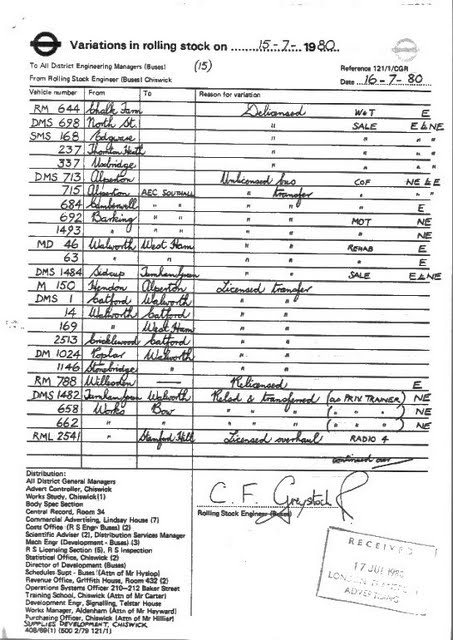 Variations in rolling stock on 15-7- 1980
To All District Engineering Managers (Buses) (15) Reference 121/1/CGR
From Rolling Stock Engineer (Buses) Chiswick Date 16-7-80
Vehicle number From To Reason for variation
RM 644 Chalk Farm Delicensed W&T E
DMS 698 North St. " SALE E & NE
SMS 168 Edgware " " " "
237 Thornton Heath " " " "
337 Uxbridge " " " "
DMS 713 Alperton Unlicensed bus COF NE & E
715 Alperton AEC SOUTHALL " transfer " " "
684 Camberwell " " " " E
692 Barking " " " " MOT NE
1493 " " " " " " NE
MD 46 Walworth West Ham " " REHAB E
63 " " " " " E
DMS 1484 Sidcup Turnham Green " " SALE E & NE
M 150 Hendon Alperton Licensed transfer
DMS 1 Catford Walworth " "
14 Walworth Catford " "
169 " West Ham " "
2513 Cricklewood Catford " "
DM 1024 Poplar Walworth " "
1146 Stonebridge " " "
RM 788 Willesden — Relicensed E
DMS 1482 Turnham Green Walworth Relcd & transferred (as PRIV TRAINER) NE
658 Works Bow " " " ( " " " ) NE
662 " " " " " ( " " " ) NE
RML 2541 " Stamford Hill Licensed overhaul RADIO 4
continued over
Distribution:
All District General Managers
Advert Controller, Chiswick
Works Study, Chiswick (1)
Body Spec Section
Central Record, Room 34
Commercial Advertising, Lindsay House (7)
Costs Office (R S Engr Buses) (2)
Scientific Adviser (2), Distribution Services Manager
Mech Engr (Development - Buses) (3)
R S Licensing Section (5), R S Inspection
Statistical Office, Chiswick (2)
Director of Development (Buses)
Schedules Supt - Buses (Attn of Mr Hyslop)
Revenue Office, Griffith House, Room 432 (2)
Operations Systems Officer 210-212 Baker Street
Training School, Chiswick (Attn of Mr Carter)
Development Engr, Signalling, Telstar House
Works Manager, Aldenham (Attn of Mr Hayward)
Purchasing Officer, Chiswick (Attn of Mr Hillier)
SUPPLIES DEVELOPMENT, CHISWICK.
408/69(1) (500 2/79 121/1)
C. F.
Rolling Stock Engineer (Buses)
RECEIVED
17 JUL 1980
LONDON TRANSPORT
ADVERTISING